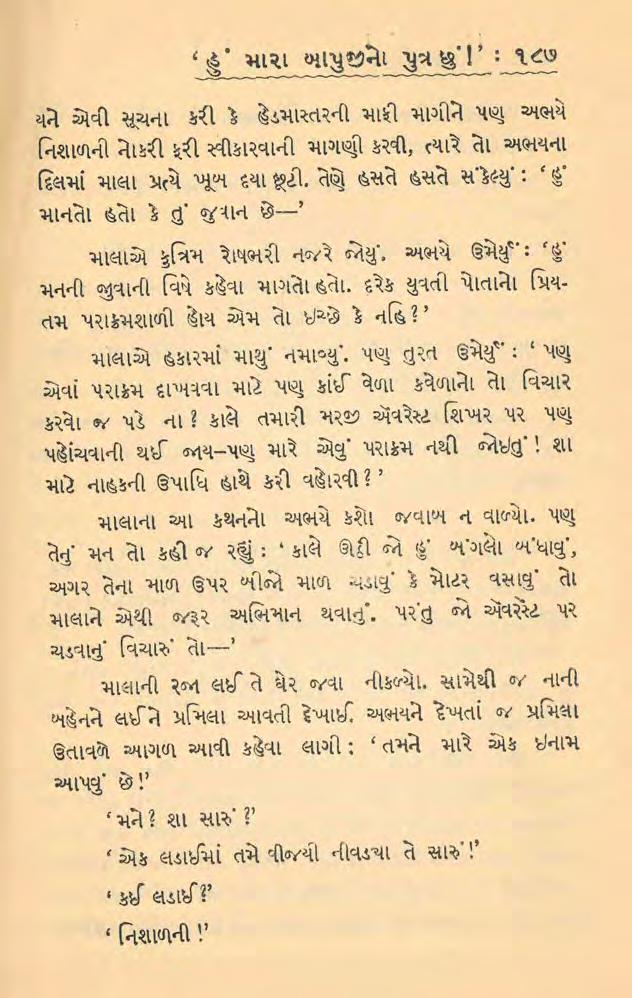 ‘હું મારા બાપુજીનો પુત્ર છું!’ : ૧૮૭
યને એવી સૂચના કરી કે હેડમાસ્તરની માફી માગીને પણ અભયે
નિશાળની નોકરી ફરી સ્વીકારવાની માગણી કરવી, ત્યારે તો અભયના
દિલમાં માલા પ્રત્યે ખૂબ દયા છૂટી. તેણે હસતે હસતે સંકેલ્યું : ‘હું
માનતો હતો કે તું જુવાન છે—’
માલાએ કૃત્રિમ રોષભરી નજરે જોયું. અભયે ઉમેર્યું : ‘હું
મનની જુવાની વિષે કહેવા માગતો હતો. દરેક યુવતી પોતાનો પ્રિય-
તમ પરાક્રમશાળી હોય એમ તો ઇચ્છે કે નહિ?’
માલાએ હકારમાં માથું નમાવ્યું. પણ તુરત ઉમેર્યું : ‘ પણ
એવાં પરાક્રમ દાખવવા માટે પણ કાંઈ વેળા કવેળાનો તો વિચાર
કરવો જ પડે ના? કાલે તમારી મરજી ઍવરેસ્ટ શિખર પર પણ
પહોંચવાની થઈ જાય–પણ મારે એવું પરાક્રમ નથી જોઇતું! શા
માટે નાહકની ઉપાધિ હાથે કરી વહોરવી?’
માલાના આ કથનનો અભયે કશો જવાબ ન વાળ્યો. પણ
તેનું મન તો કહી જ રહ્યું : ‘કાલે ઊઠી જો હું બંગલો બંધાવું,
અગર તેના માળ ઉપર બીજો માળ ચડાવું કે મોટર વસાવું તો
માલાને એથી જરૂર અભિમાન થવાનું. પરંતુ જો ઍવરેસ્ટ પર
ચડવાનું વિચારું તો—’
માલાની રજા લઈ તે ઘેર જવા નીકળ્યો. સામેથી જ નાની
બહેનને લઈને પ્રમિલા આવતી દેખાઈ. અભયને દેખતાં જ પ્રમિલા
ઉતાવળે આગળ આવી કહેવા લાગી : ‘તમને મારે એક ઇનામ
આપવું છે!’
‘મને? શા સારું?’
‘એક લડાઈમાં તમે વીજયી નીવડયા તે સારું!’
‘કઈ લડાઈ?’
‘નિશાળની!’